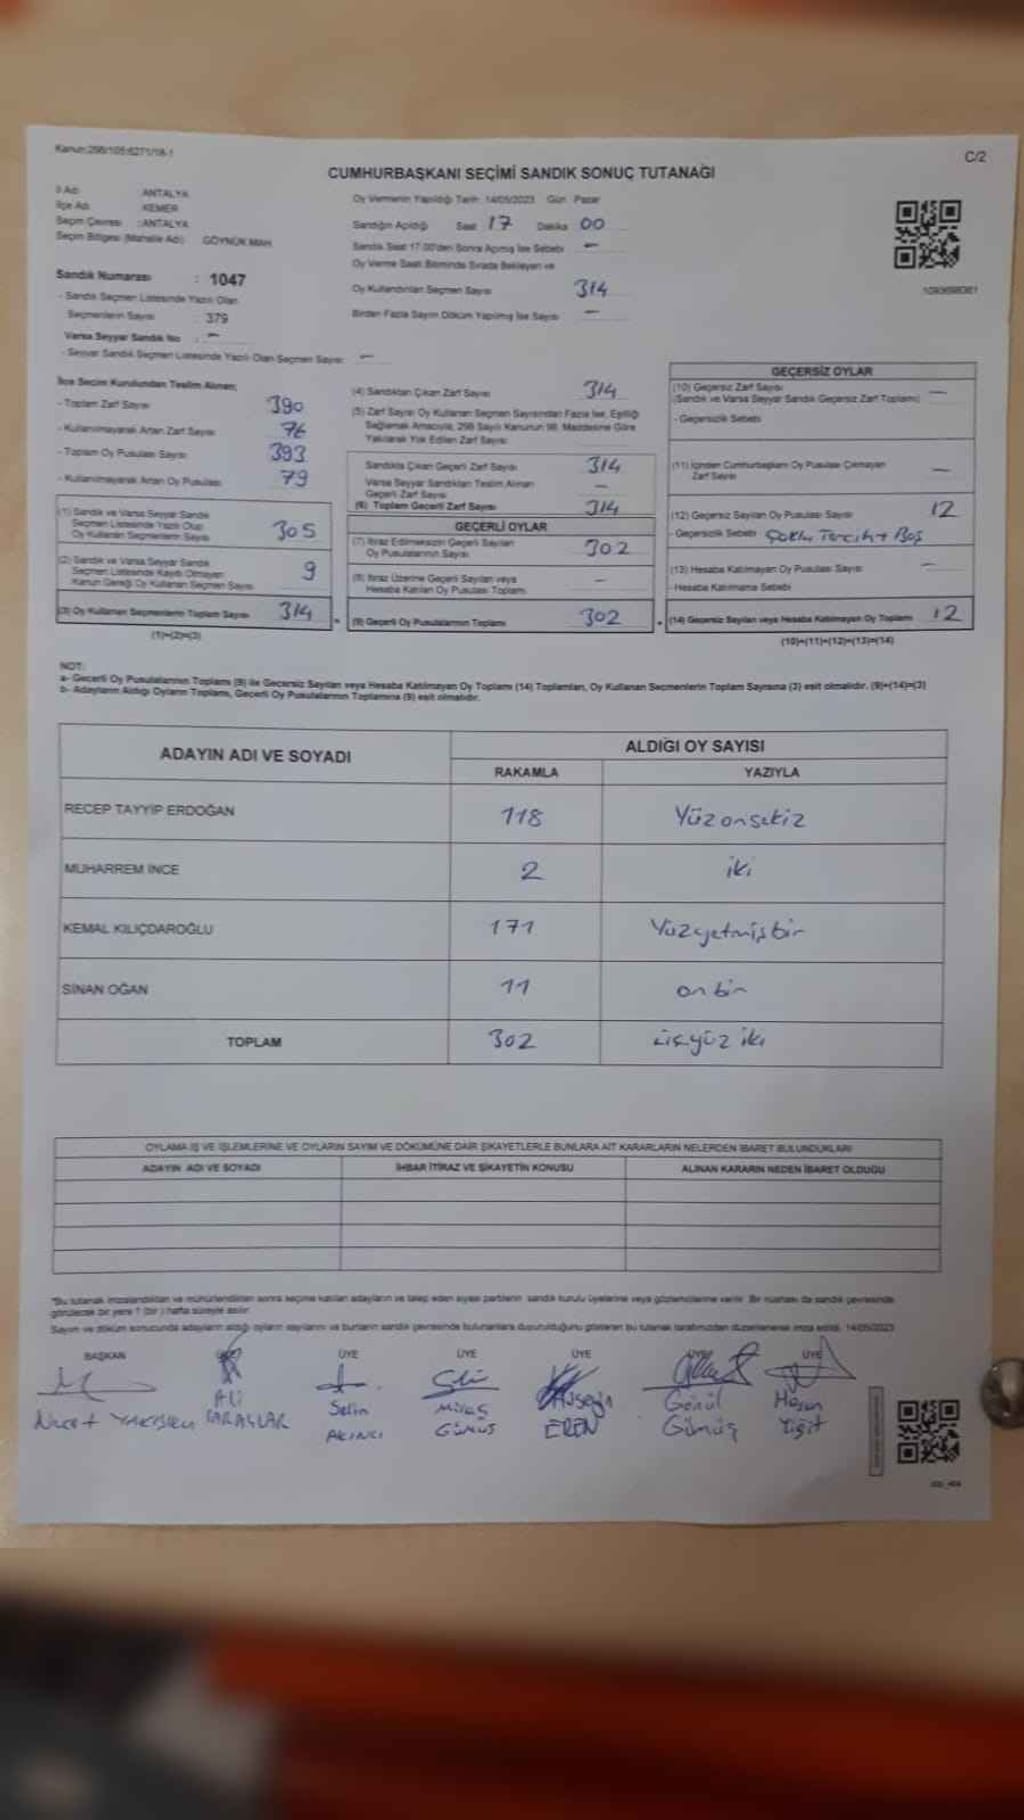 Kanun:298/105:6271/18-1
C/2
CUMHURBAŞKANI SEÇİMİ SANDIK SONUÇ TUTANAĞI
İl Adı ANTALYA
İlçe Adı KEMER
Seçim Çevresi :ANTALYA
Seçim Bölgesi (Mahalle Adı) GÖYNÜK MAH
Sandık Numarası : 1047
- Sandık Seçmen Listesinde Yazılı Olan
Seçmenlerin Sayısı 379
Varsa Seyyar Sandık No : -
- Seyyar Sandık Seçmen Listesinde Yazılı Olan Seçmen Sayısı: -
Oy Vermenin Yapıldığı Tarih: 14/05/2023 Gün: Pazar
Sandığın Açıldığı Saat 17 Dakika 00
Sandık Saat 17.00'den Sonra Açılmış İse Sebebi -
Oy Verme Saati Bitiminde Sırada Bekleyen ve
Oy Kullandırılan Seçmen Sayısı 314
Birden Fazla Sayım Döküm Yapılmış İse Sayısı -
İlçe Seçim Kurulundan Teslim Alınan;
- Toplam Zarf Sayısı 390
- Kullanılmayarak Artan Zarf Sayısı 76
- Toplam Oy Pusulası Sayısı 393
- Kullanılmayarak Artan Oy Pusulası 79
(1) Sandık ve Varsa Seyyar Sandık
Seçmen Listesinde Yazılı Olup
Oy Kullanan Seçmenlerin Sayısı 305
(2) Sandık ve Varsa Seyyar Sandık
Seçmen Listesinde Kayıtlı Olmayan
Kanun Gereği Oy Kullanan Seçmen Sayısı 9
(3) Oy Kullanan Seçmenlerin Toplam Sayısı 314
(1)+(2)=(3)
(4) Sandıktan Çıkan Zarf Sayısı 314
(5) Zarf Sayısı Oy Kullanan Seçmen Sayısından Fazla İse, Eşitliği
Sağlamak Amacıyla, 298 Sayılı Kanunun 98. Maddesine Göre
Yakılarak Yok Edilen Zarf Sayısı
Sandıkta Çıkan Geçerli Zarf Sayısı 314
Varsa Seyyar Sandıktan Teslim Alınan
Geçerli Zarf Sayısı -
(6) Toplam Geçerli Zarf Sayısı 314
GEÇERLİ OYLAR
(7) İtiraz Edilmeksizin Geçerli Sayılan
Oy Pusulalarının Sayısı 302
(8) İtiraz Üzerine Geçerli Sayılan veya
Hesaba Katılan Oy Pusulası Toplamı -
(9) Geçerli Oy Pusulalarının Toplamı 302
GEÇERSİZ OYLAR
(10) Geçersiz Zarf Sayısı
(Sandık ve Varsa Seyyar Sandık Geçersiz Zarf Toplamı) -
- Geçersizlik Sebebi
(11) İçinden Cumhurbaşkanı Oy Pusulası Çıkmayan
Zarf Sayısı -
(12) Geçersiz Sayılan Oy Pusulası Sayısı 12
- Geçersizlik Sebebi Çoklu Tercih + Boş
(13) Hesaba Katılmayan Oy Pusulası Sayısı -
- Hesaba Katılmama Sebebi
(14) Geçersiz Sayılan veya Hesaba Katılmayan Oy Toplamı 12
(10)+(11)+(12)+(13)=(14)
NOT:
a- Geçerli Oy Pusulalarının Toplamı (9) ile Geçersiz Sayılan veya Hesaba Katılmayan Oy Toplamı (14) Toplamları, Oy Kullanan Seçmenlerin Toplam Sayısına (3) eşit olmalıdır. (9)+(14)=(3)
b- Adayların Aldığı Oyların Toplamı, Geçerli Oy Pusulalarının Toplamına (9) eşit olmalıdır.
ADAYIN ADI VE SOYADI ALDIĞI OY SAYISI
RAKAMLA YAZIYLA
RECEP TAYYİP ERDOĞAN 118 Yüzonsekiz
MUHARREM İNCE 2 iki
KEMAL KILIÇDAROĞLU 171 Yüzyetmişbir
SİNAN OĞAN 11 onbir
TOPLAM 302 üçyüz iki
OYLAMA İŞ VE İŞLEMLERİNE VE OYLARIN SAYIM VE DÖKÜMÜNE DAİR ŞİKAYETLERLE BUNLARA AİT KARARLARIN NELERDEN İBARET BULUNDUKLARI
ADAYIN ADI VE SOYADI İHBAR İTİRAZ VE ŞİKAYETİN KONUSU ALINAN KARARIN NEDEN İBARET OLDUĞU
*Bu tutanak imzalandıktan ve mühürlendikten sonra seçime katılan adayların ve talep eden siyasi partilerin sandık kurulu üyelerine veya gözlemcilerine verilir. Bir nüshası da sandık çevresinde
görülecek bir yere 1 (bir) hafta süreyle asılır.
Sayım ve döküm sonucunda adayların aldığı oyların sayılarını ve bunların sandık çevresinde bulunanlara duyurulduğunu gösteren bu tutanak tarafımızdan düzenlenerek imza edildi. 14/05/2023
BAŞKAN ÜYE ÜYE ÜYE ÜYE ÜYE
Ali Selin Miraç Hüseyin Gönül Hasan
KARASLAR AKINCI GÜMÜŞ EREN Gümüş Yiğit